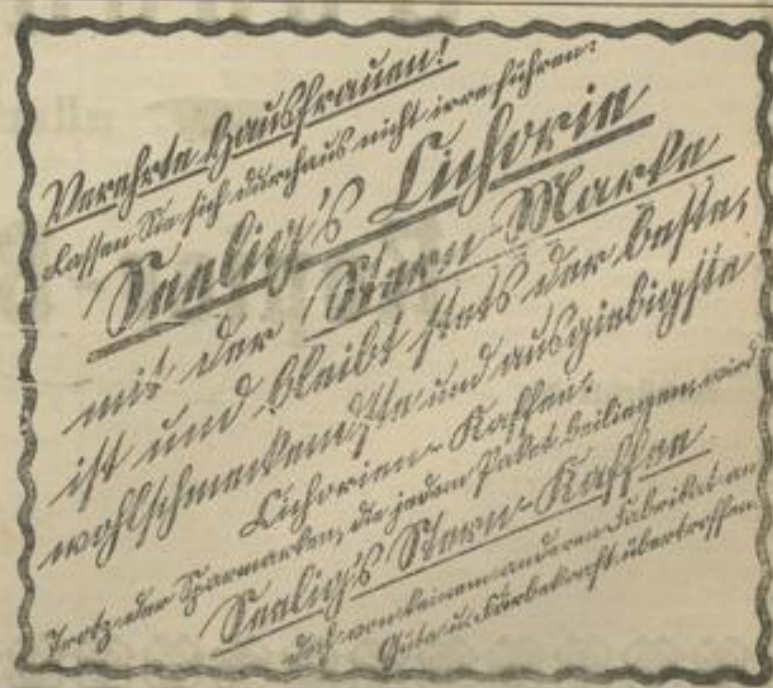 Verehrte Hausfrauen!
Lassen Sie sich durchaus nicht irreführen:
Seelig's Cichorie
mit der Stern-Marke
ist und bleibt stets der beste,
wohlschmeckendste und ausgiebigste
Cichorien-Kaffee.
Trotz der Sparmarken, die jedem Paket beiliegen, wird
Seelig's Stern-Kaffee
doch von keinem anderen Fabrikat an
Güte u. Färbekraft übertroffen